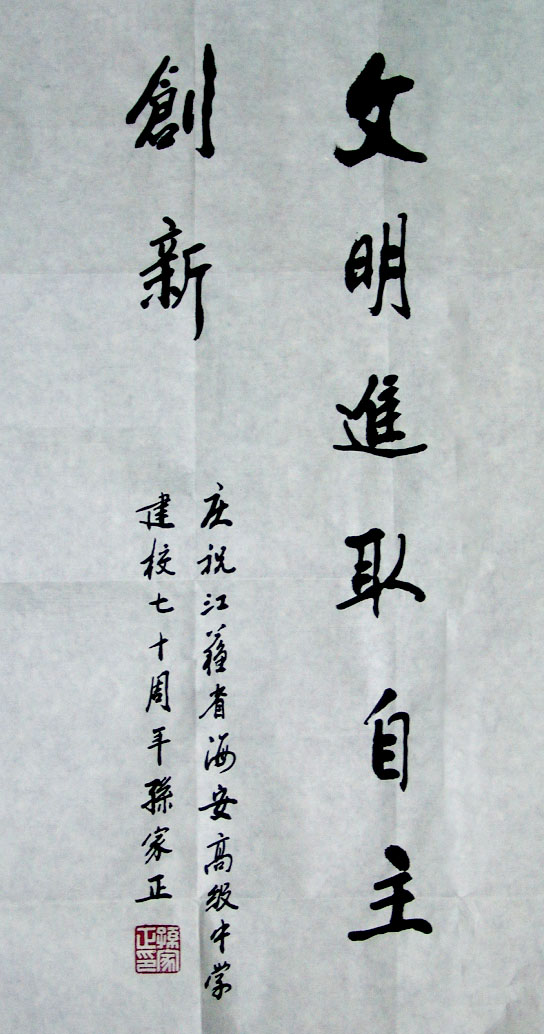 文明進取自主
創新
庆祝江蘇省海安高级中学
建校七十周年孫家正
孫家正印